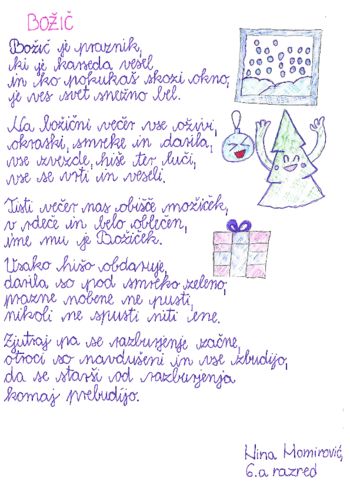 BOŽIČ
Božič je praznik,
ki je kar seda vesel
in ko pokukaš skozi okno,
je ves svet snežno bel.
Na božični večer vse oživi,
okraski, smreke in darila,
vse zvezde, hiše ter luči,
vse se vrti in veseli.
Tisti večer nas obišče možiček,
v rdeče in belo oblečen,
ime mu je Božiček.
Vsako hišo obdaruje,
darila so pod smreko zeleno,
prazne nobene ne pusti,
nikoli ne spusti niti ene.
Zjutraj pa se razburjenje začne,
otroci so navdušeni in vse zbudijo,
da se starši od razburjenja
komaj prebudijo.
Nina Momirović,
6.a razred